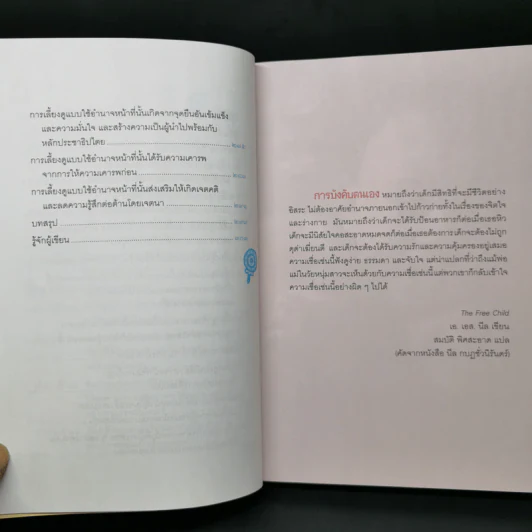 การเลี้ยงดูแบบใช้อำนาจหน้าที่นั้นเกิดจากจุดยืนอันเข้มแข็ง
และความมั่นใจ และสร้างความเป็นผู้นำไปพร้อมกับ
หลักประชาธิปไตย
การเลี้ยงดูแบบใช้อำนาจหน้าที่นั้นได้รับความเคารพ
จากการให้ความเคารพก่อน
การเลี้ยงดูแบบใช้อำนาจหน้าที่นั้นส่งเสริมให้เกิดเจตคติ
และลดความรู้สึกต่อต้านโดยเจตนา
บทสรุป
รู้จักผู้เขียน
การบังคับตนเอง หมายถึงว่าเด็กมีสิทธิที่จะมีชีวิตอย่าง
อิสระ ไม่ต้องอาศัยอำนาจภายนอกเข้าไปก้าวก่ายทั้งในเรื่องของจิตใจ
และร่างกาย มันหมายถึงว่าเด็กจะได้รับป้อนอาหารก็ต่อเมื่อเธอหิว
เด็กจะมีนิสัยใจคอสะอาดหมดจดก็ต่อเมื่อเธอต้องการ เด็กจะต้องไม่ถูก
ดุด่าเฆี่ยนตี และเด็กจะต้องได้รับความรักและความคุ้มครองอยู่เสมอ
ความเชื่อเช่นนี้ฟังดูง่าย ธรรมดา และจับใจ แต่น่าแปลกที่ว่าถึงแม้พ่อ
แม่ในวัยหนุ่มสาวจะเห็นด้วยกับความเชื่อเช่นนี้ แต่พวกเขาก็กลับเข้าใจ
ความเชื่อเช่นนี้อย่างผิด ๆ ไปได้
The Free Child
เอ. เอส. นีล เขียน
สมบัติ พิศสะอาด แปล
(คัดจากหนังสือ นีล กบฏชั่วนิรันดร์)